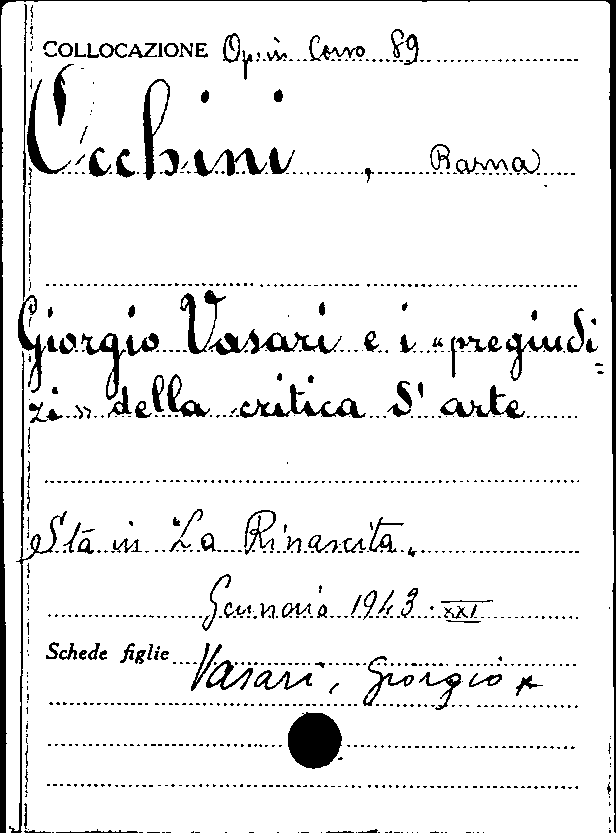 COLLOCAZIONE Op. in Corso 89
Occhini, Barna
Giorgio Vasari e i «pregiudi=
zi» della critica d'arte
Sta in "La Rinascita„
Gennaio 1943 · XXI
Schede figlie Vasari, Giorgio *